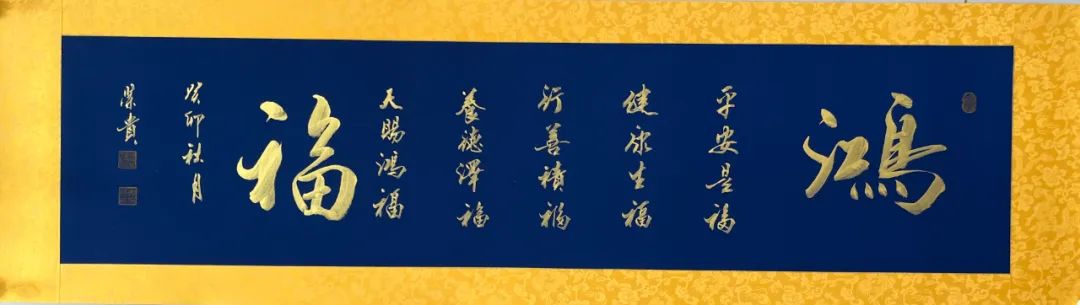 鴻
平安是福
健康生福
行善積福
養德澤福
天賜鴻福
福
癸卯秋月
榮貴